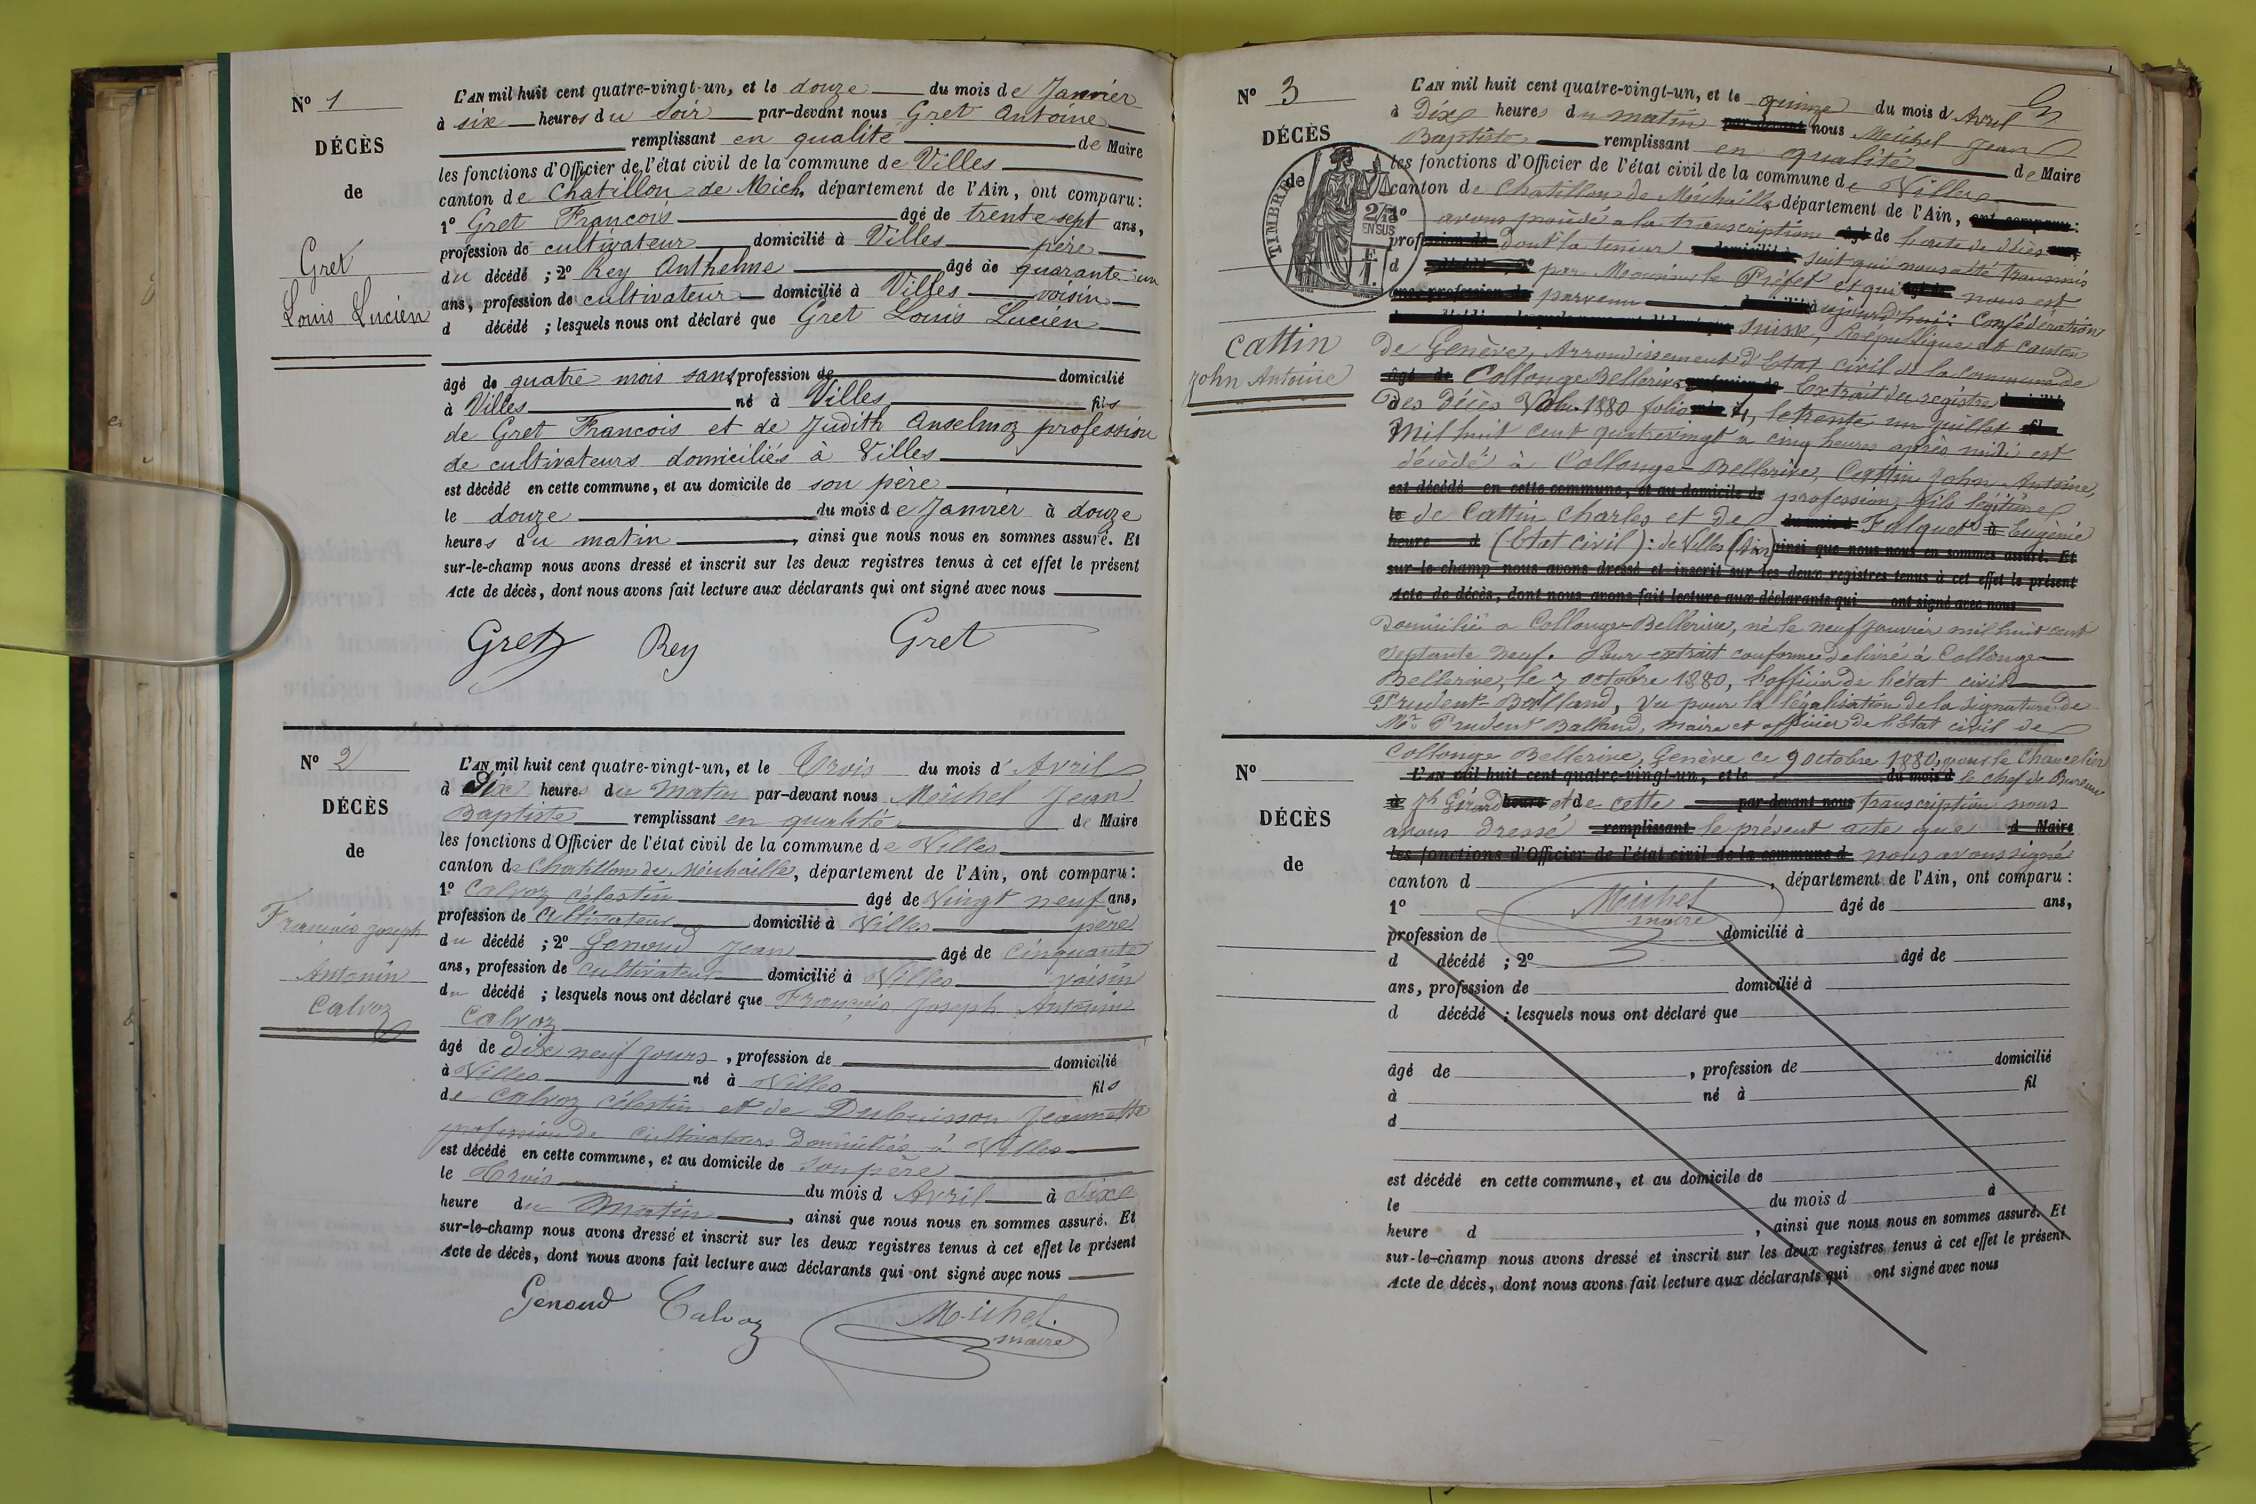 N° 1
DÉCÈS
de
Gret
Louis Lucien
L'AN mil huit cent quatre-vingt-un, et le douze du mois de Janvier
à six heures du soir par-devant nous Gret Antoine
remplissant en qualité de Maire
les fonctions d'Officier de l'état civil de la commune de Villes
canton de Chatillon de Mich. département de l'Ain, ont comparu:
1° Gret François âgé de trente sept ans,
profession de cultivateur domicilié à Villes père
du décédé ; 2° Rey Anthelme âgé de quarante un
ans, profession de cultivateur domicilié à Villes voisin
d décédé ; lesquels nous ont déclaré que Gret Louis Lucien
âgé de quatre mois sans profession de domicilié
à Villes né à Villes fils
de Gret François et de Judith Anselmoz profession
de cultivateurs domiciliés à Villes
est décédé en cette commune, et au domicile de son père
le douze du mois de Janvier à douze
heures du matin, ainsi que nous nous en sommes assuré. Et
sur-le-champ nous avons dressé et inscrit sur les deux registres tenus à cet effet le présent
Acte de décès, dont nous avons fait lecture aux déclarants qui ont signé avec nous
Gret Rey Gret
N° 2
DÉCÈS
de
François Joseph
Antonin
Calvoz
L'AN mil huit cent quatre-vingt-un, et le Trois du mois d'Avril
à Six heures du Matin par-devant nous Michel Jean
Baptiste remplissant en qualité de Maire
les fonctions d'Officier de l'état civil de la commune de Villes
canton de Chatillon de Michaille, département de l'Ain, ont comparu:
1° Calvoz célestin âgé de Vingt neuf ans,
profession de Cultivateur domicilié à Villes père
du décédé ; 2° Genoud Jean âgé de cinquante
ans, profession de Cultivateur domicilié à Villes voisin
du décédé ; lesquels nous ont déclaré que François Joseph Antonin
Calvoz
âgé de dix neuf jours, profession de domicilié
à Villes né à Villes fils
de Calvoz célestin et de Dubuisson Jeannette
profession de Cultivateurs Domiciliés à Villes
est décédé en cette commune, et au domicile de son père
le Trois du mois d Avril à Six
heure du Matin, ainsi que nous nous en sommes assuré. Et
sur-le-champ nous avons dressé et inscrit sur les deux registres tenus à cet effet le présent
Acte de décès, dont nous avons fait lecture aux déclarants qui ont signé avec nous
Genoud Calvoz Michel.
maire
N° 3
DÉCÈS
de
TIMBRE
2/10
EN SUS
1 F
Cattin
John Antoine
L'AN mil huit cent quatre-vingt-un, et le quinze du mois d'Avril
à Dix heures du matin par-devant nous Michel Jean
Baptiste remplissant en qualité de Maire
les fonctions d'Officier de l'état civil de la commune de Villes
canton de Chatillon de Michaille département de l'Ain, ont comparu:
1° avons procédé a la transcription âgé de l'acte de décès
profession de dont la teneur domicilié à suit qui nous a été transmis
d par Monsieur le Préfet et qui nous est
ans, profession de parvenu domicilié à aujourd'hui: Confédération
Suisse, République et canton
De Genève, Arrondissement d'Etat civil de la Commune de
âgé de Collonge Bellerive profession de Extrait du registre domicilié
Des Décès Vol. 1880 folio 4, le trente un Juillet
Mil huit cent quatrevingt a cinq heures après midi est
décédé à Collonge-Bellerive, Cattin John Antoine,
est décédé en cette commune, et au domicile de profession, fils légitime
le de Cattin Charles et de du mois d Falquet à Eugénie
heure d (Etat civil): de Villes (Ain) ainsi que nous nous en sommes assuré. Et
sur-le-champ nous avons dressé et inscrit sur les deux registres tenus à cet effet le présent
Acte de décès, dont nous avons fait lecture aux déclarants qui ont signé avec nous
Domicilié a Collonge-Bellerive, né le neuf Janvier mil huit cent
Septante neuf. Pour extrait conforme délivré à Collonge
Bellerive, le 7 octobre 1880, l'officier de l'état civil
Prudent Balland, Vu pour la légalisation de la signature de
Mr. Prudent Balland, maire et officier de l'Etat civil de
Collonge Bellerive, Genève ce 9 octobre 1880, pour le Chancelier
N°
DÉCÈS
de
L'AN mil huit cent quatre-vingt-un, et le du mois d le chef de Bureau
à Jh Girard heure et de cette par-devant nous transcription nous
avons dressé remplissant le présent acte que d Maire
les fonctions d'Officier de l'état civil de la commune d nous avons signé
canton d , département de l'Ain, ont comparu :
Michel
maire
1° âgé de ans,
profession de domicilié à
d décédé ; 2° âgé de
ans, profession de domicilié à
d décédé ; lesquels nous ont déclaré que
âgé de , profession de domicilié
à né à fil
d
est décédé en cette commune, et au domicile de
le du mois d à
heure d , ainsi que nous nous en sommes assuré. Et
sur-le-champ nous avons dressé et inscrit sur les deux registres tenus à cet effet le présent
Acte de décès, dont nous avons fait lecture aux déclarants qui ont signé avec nous